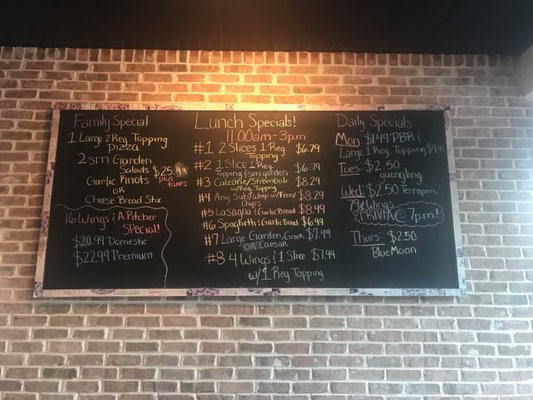 Family Special
1 Large 2 Reg Topping
Pizza
2 sm Garden
Salads $25.99
Garlic Knots plus taxes
OR
Cheese Bread Stix
16 Wings & A Pitcher
Special!
$20.99 Domestic
$22.99 Premium
Lunch Specials!
11:00am-3pm
#1 2 Slices 1 Reg Topping $6.79
#2 1 Slice 1 Reg Topping & sm garden $6.79
#3 Calzone/Stromboli w/1 Reg Topping $8.29
#4 Any Sub/Wrap w/Fries/Chips $8.29
#5 Lasagna & Garlic Bread $8.99
#6 Spaghetti & Garlic Bread $6.99
#7 Large Garden, Greek OR Caesar $7.99
#8 4 Wings & 1 Slice $7.99
w/1 Reg Topping
Daily Specials
Mon $1.99 PBR &
Large 1 Reg Topping
Tues: $2.50
yuengling
Wed: $2.50 Terrapin,
Wings
TRIVIA @ 7pm!
Thurs: $2.50
Blue Moon